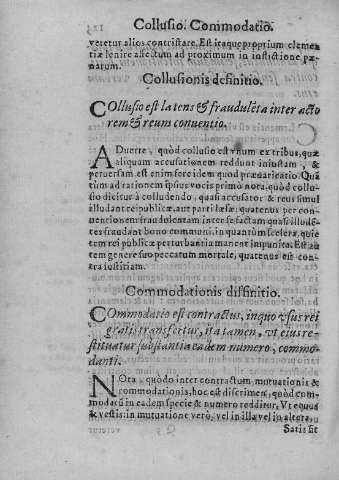 Collusio. Commodatio.
veretur alios contristare. Est itaque proprium clemen
tiæ lenire affectum ad proximum in inflictione pœ-
narum.
Collusionis definitio.
COllusio est latens & fraudulēta inter acto
rem & reum conuentio.
ADuerte, quòd collusio est vnum ex tribus, quæ
aliquam accusationem reddunt iniustam, &
peruersam. est enim fere idem quod præuaricatio. Quā
tùm ad rationem ipsius vocis primo nota, quòd collu-
sio dicitur à colludendo, quasi accusator & reus simul
illudant reipublicæ, aut parti læsæ: quatenus per con-
uentionem fraudulentam inter se factam quasi illudē-
tes fraudant bono communi, in quantùm scelera, quie
tem rei publicæ perturbantia manent impunita. Est au
tem genere suo peccatum mortale, quatenus est con-
tra iustitiam.
Commodationis diffinitio.
COmmodatio est contractus, in quo vsus rei
gratis transfertur, ita tamen, vt eius re-
stituatur substantia eadem numero, commo-
danti.
NOta, quòd inter contractum mutuationis &
commodationis, hoc est discrimen, quòd com-
modatū in eadem specie & numero redditur, Vt equus
& vestis: in mutuatione verò, vel in illa vel in altera,
Satis fit